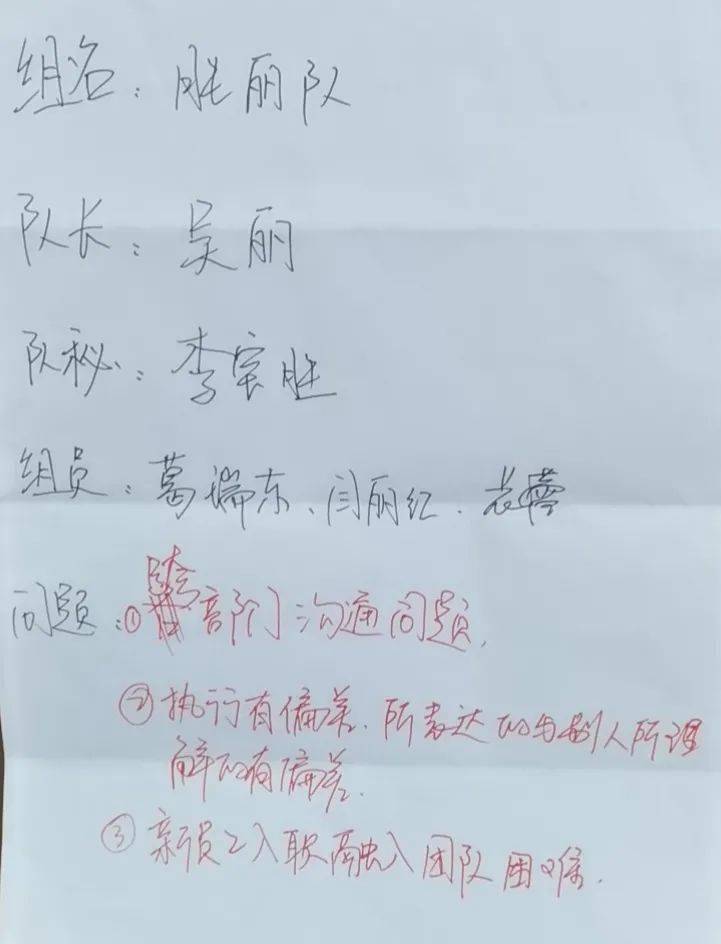 组名：胜丽队
队长：吴丽
队秘：李宝胜
组员：葛瑞东、闫丽红、
问题：①跨部门沟通问题.
②执行有偏差.所表达的与别人所理
解的有偏差.
③新员工入职融入团队困难.